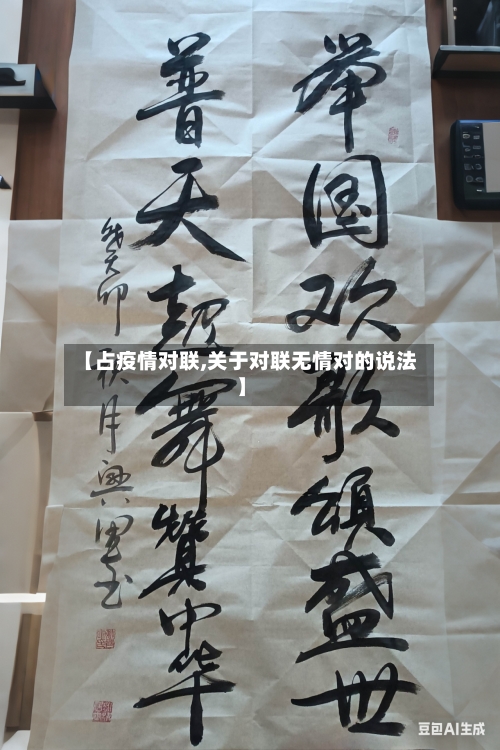 举国欢歌颂盛世
普天起舞赞中华
癸卯秋月兴军书
【占疫情对联,关于对联无情对的说法
】
豆包AI生成